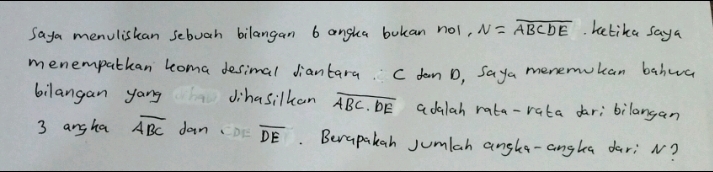 Saya menuliskan sebuah bilangan 6 angka bukan nol, N = ABCDE. ketika saya
menempatkan koma desimal diantara C dan D, saya menemukan bahwa
bilangan yang dihasilkan ABC.DE adalah rata-rata dari bilangan
3 angka ABC dan DE. Berapakah jumlah angka-angka dari N?